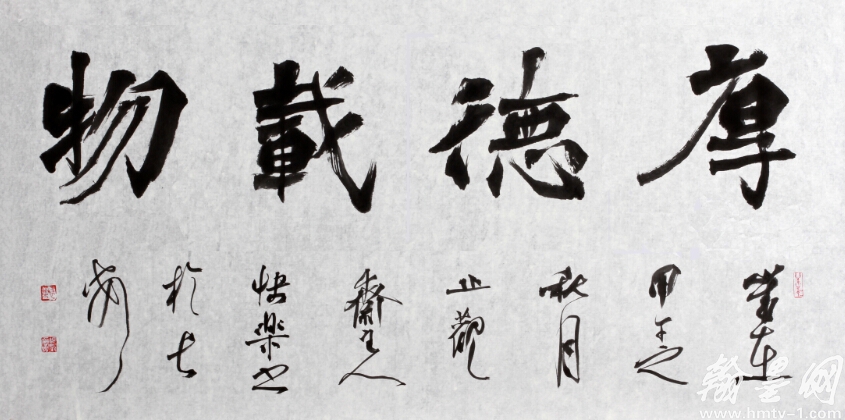 厚德載物
歲在甲午之秋月止觀齋主人快樂书於长安
翰墨网
www.hmtv-1.com